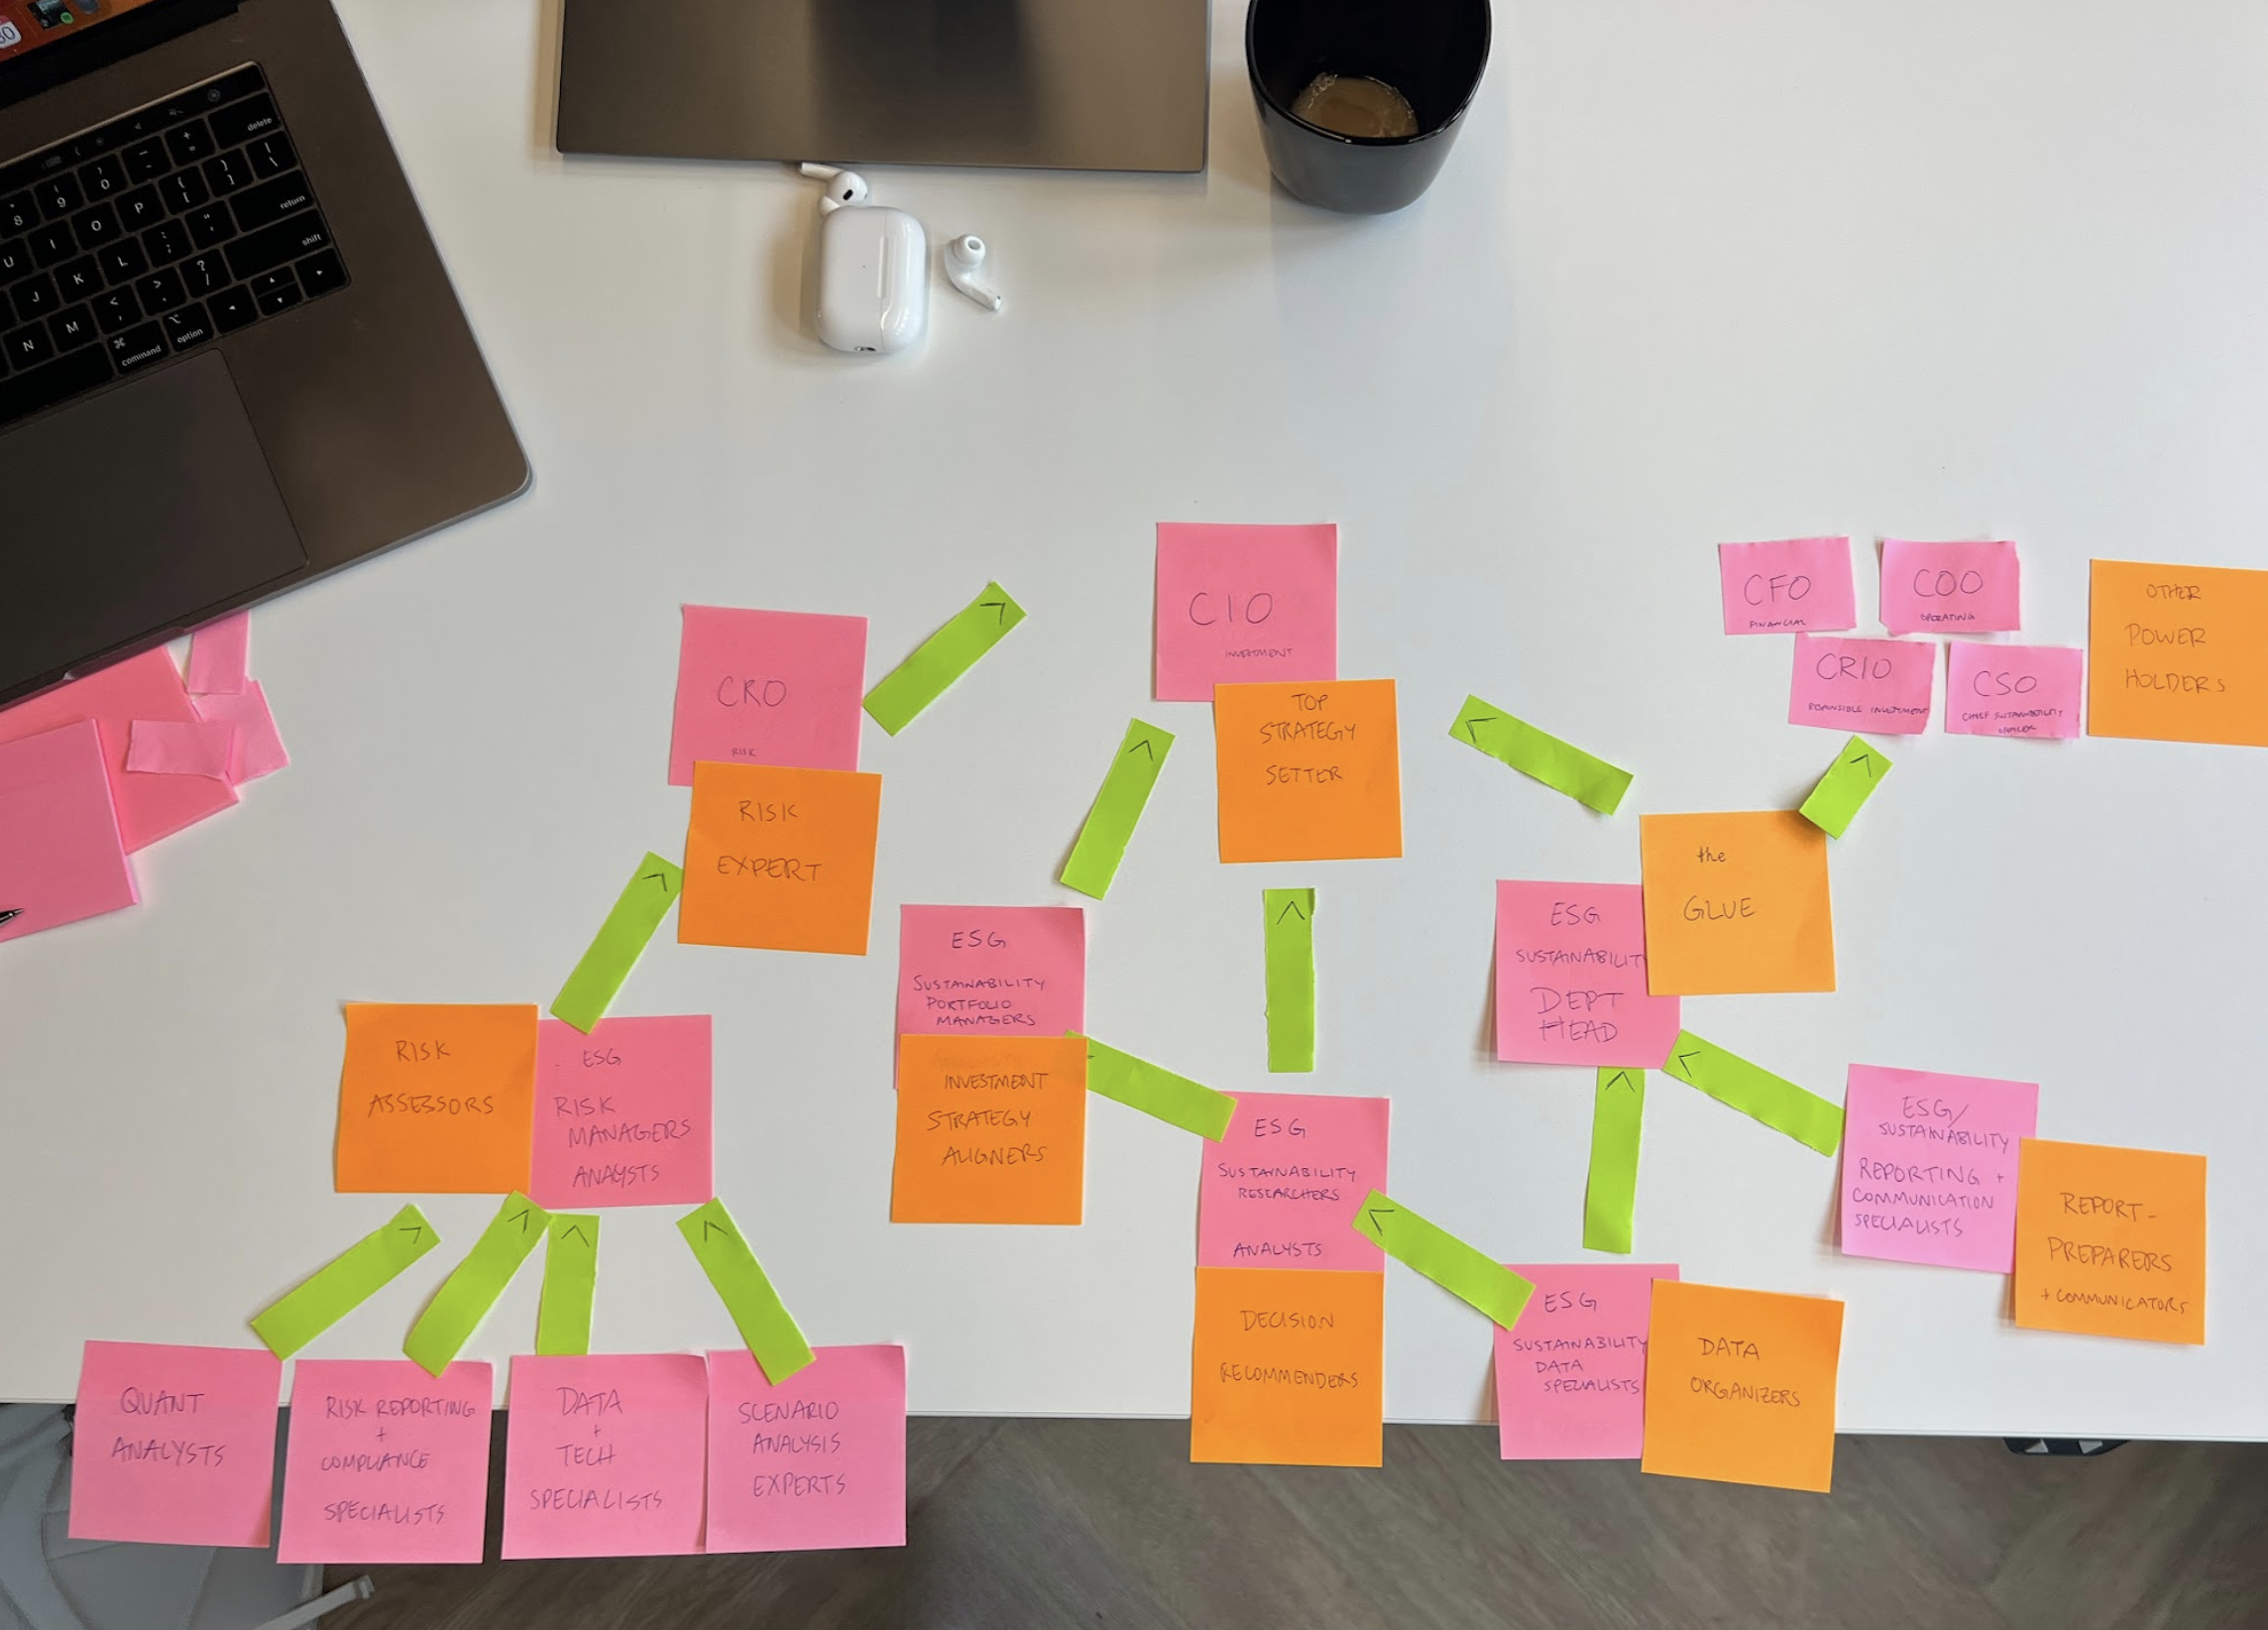 delete
return
shift
command
option
CIO
INVESTMENT
TOP
STRATEGY
SETTER
CRO
RISK
RISK
EXPERT
CFO
FINANCIAL
COO
OPERATING
CRIO
CSO
OTHER
POWER
HOLDERS
the
GLUE
ESG
SUSTAINABILITY
DEPT
HEAD
ESG
SUSTAINABILITY
PORTFOLIO
MANAGERS
INVESTMENT
STRATEGY
ALIGNERS
RISK
ASSESSORS
ESG
RISK
MANAGERS
ANALYSTS
ESG
SUSTAINABILITY
RESEARCHERS
ANALYSTS
DECISION
RECOMMENDERS
ESG/
SUSTAINABILITY
REPORTING +
COMMUNICATION
SPECIALISTS
REPORT-
PREPARERS
+ COMMUNICATORS
ESG
SUSTAINABILITY
DATA
SPECIALISTS
DATA
ORGANIZERS
QUANT
ANALYSTS
RISK REPORTING
+
COMPLIANCE
SPECIALISTS
DATA
+
TECH
SPECIALISTS
SCENARIO
ANALYSIS
EXPERTS